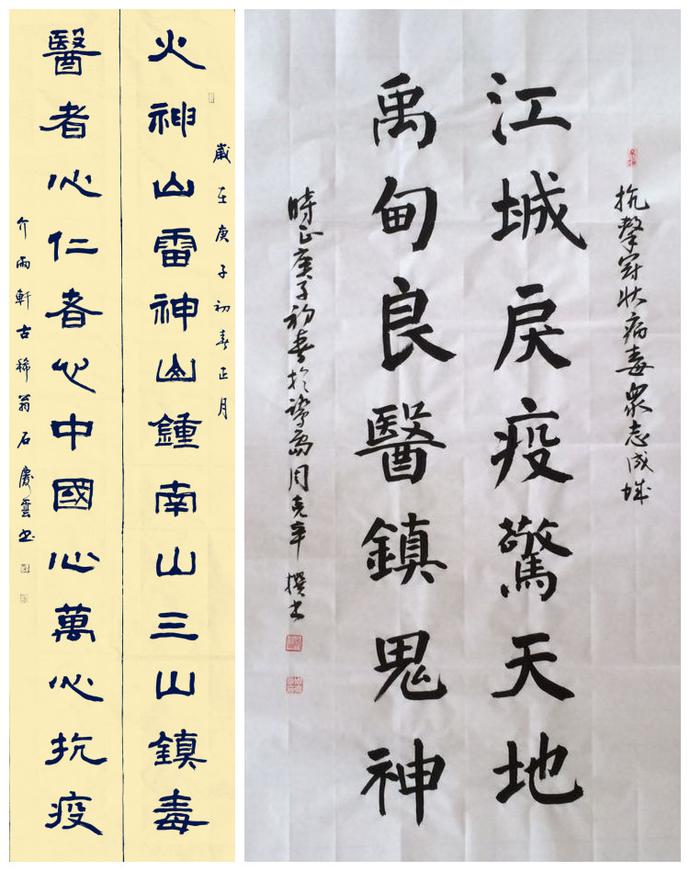 歲在庚子初春正月
火神山雷神山鍾南山三山鎮毒
醫者心仁者心中國心萬心抗疫
介雨軒古稀翁石慶雲书
抗擊冠狀病毒眾志成城
江城戾疫驚天地
禹甸良醫鎮鬼神
時正庚子初春於島周克辛撰书